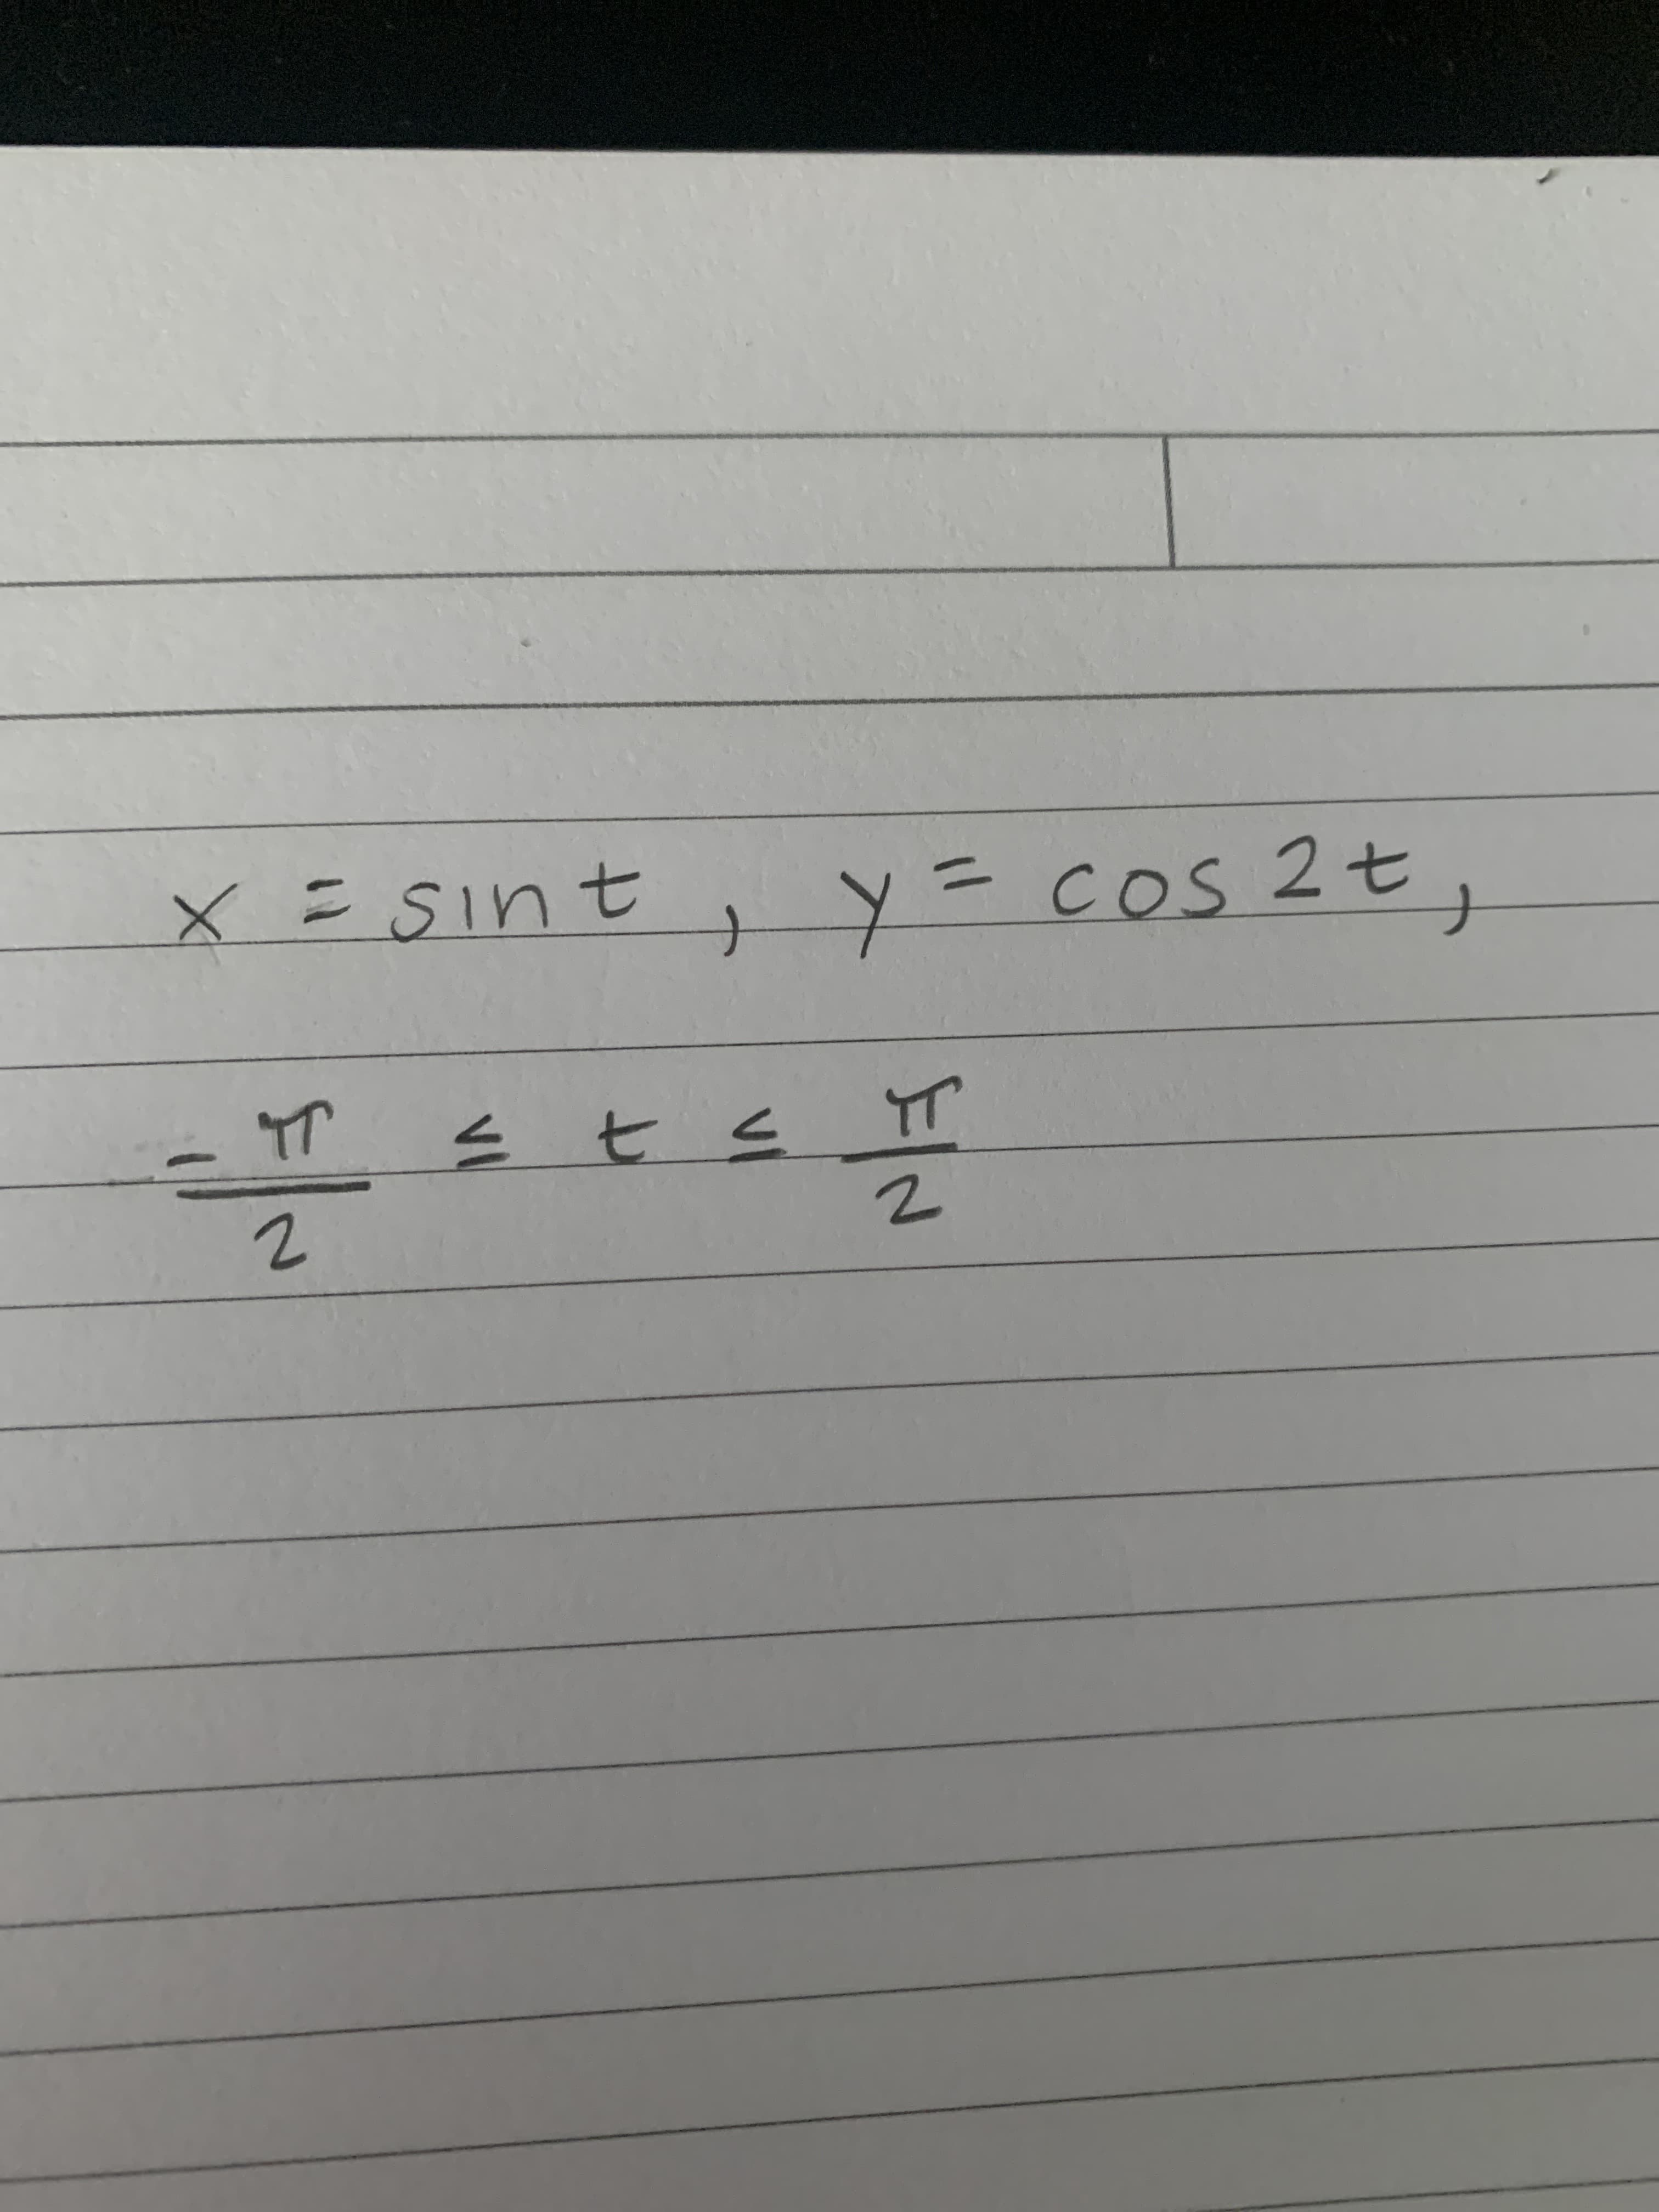 x = sin t , y = cos 2t,
-π/2 ≤ t ≤ π/2